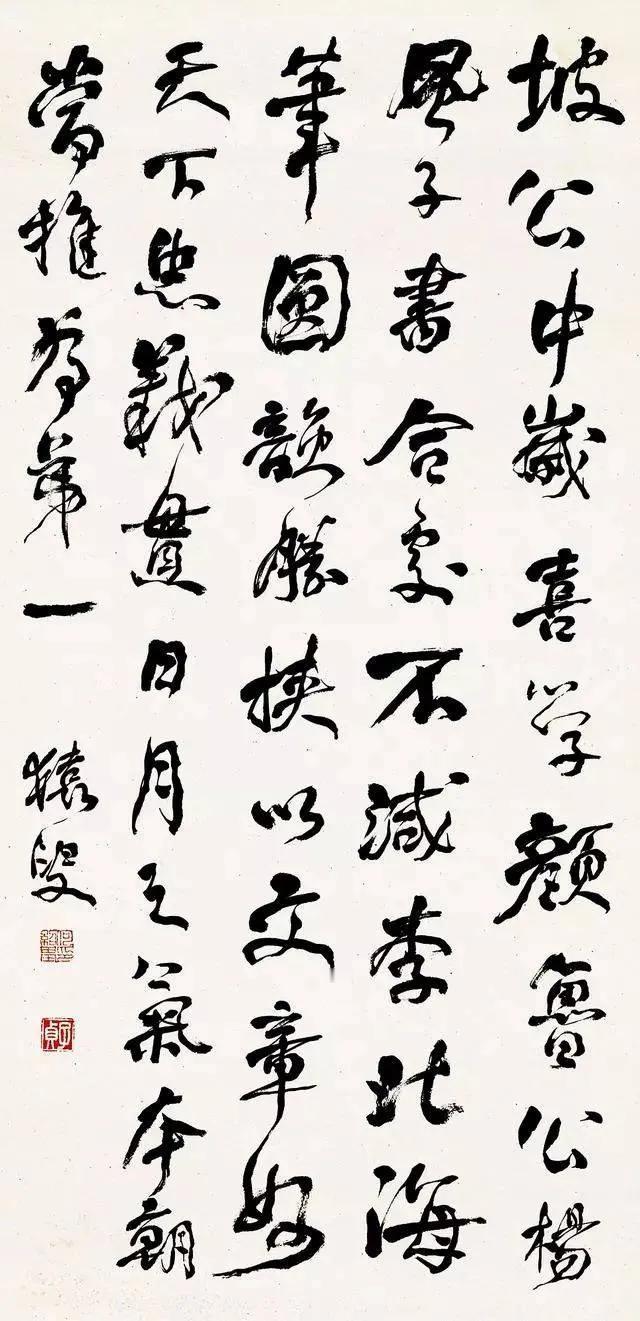 坡公中歲喜学顏魯公楊
風子書合處不減李北海
筆圓韻勝挾以文章妙
天下忠義貫日月之氣本朝
當推為第一
猿叟
何紹基印
子貞